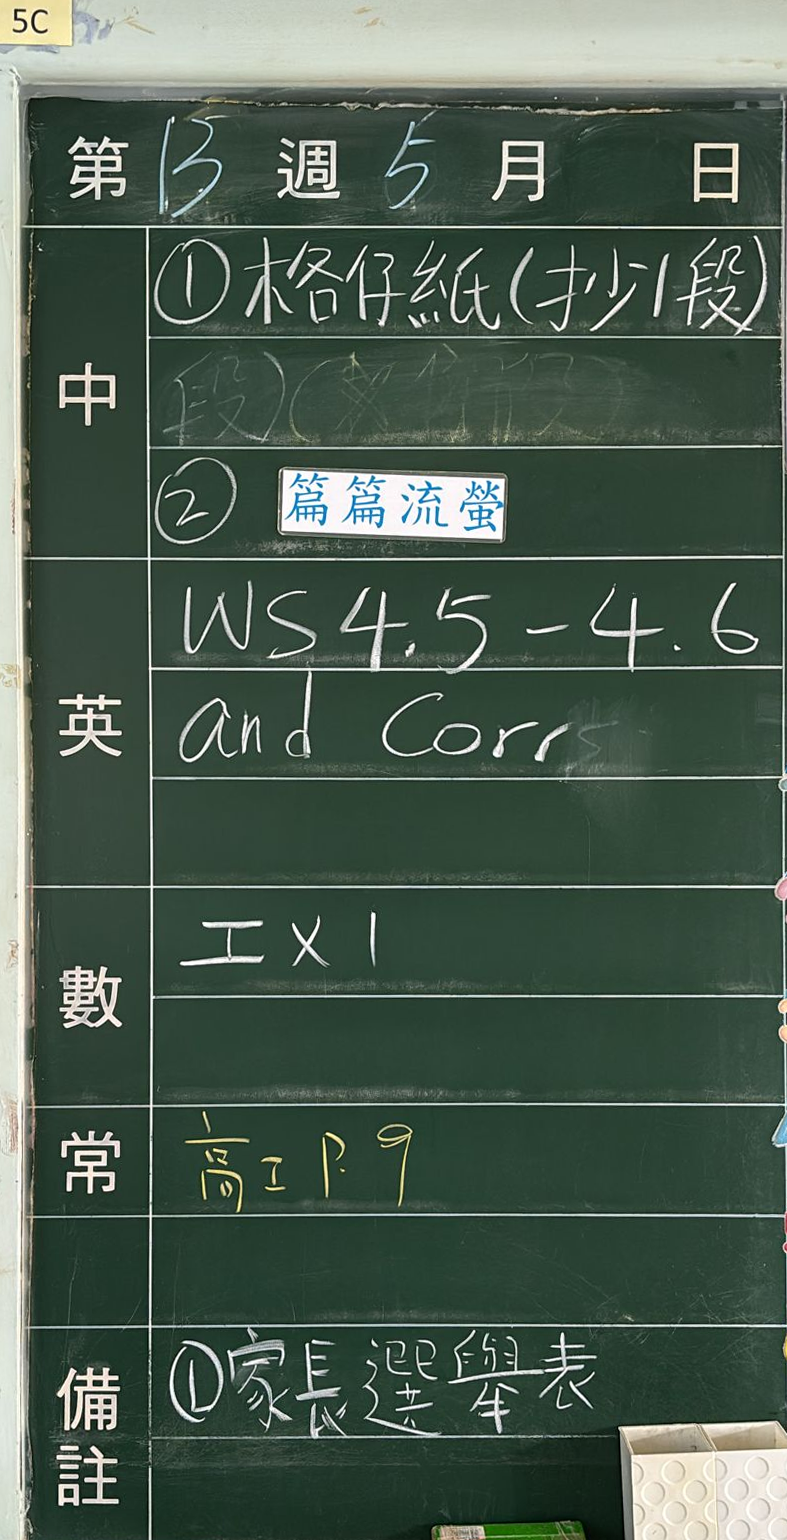 5C
第 13 週 5 月 日
中
①格仔紙(抄1段)
② 篇篇流螢
英
WS 4.5 - 4.6
and Corrs
數
工 X 1
常
高工 P. 9
備註
①家長選舉表